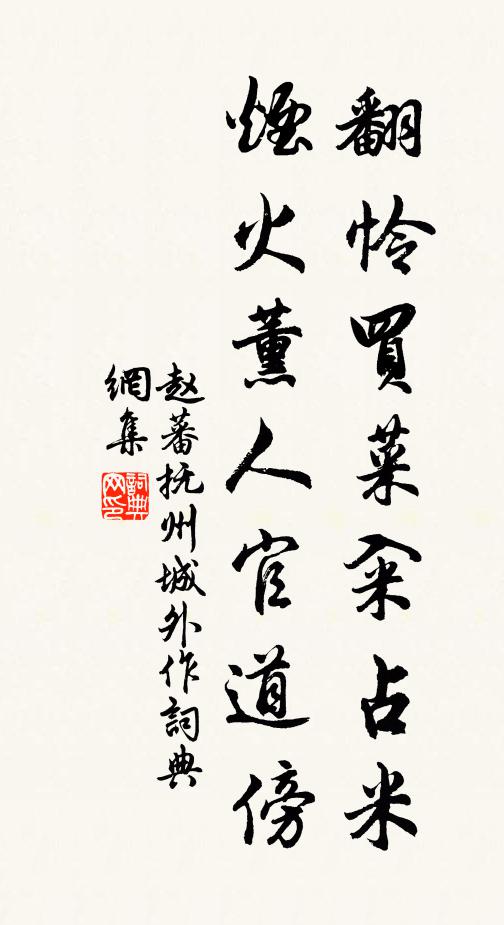 翻怜買菜籴占米
煙火薰人官道傍
赵蕃抚州城外作詞典
網集
詞典
网印